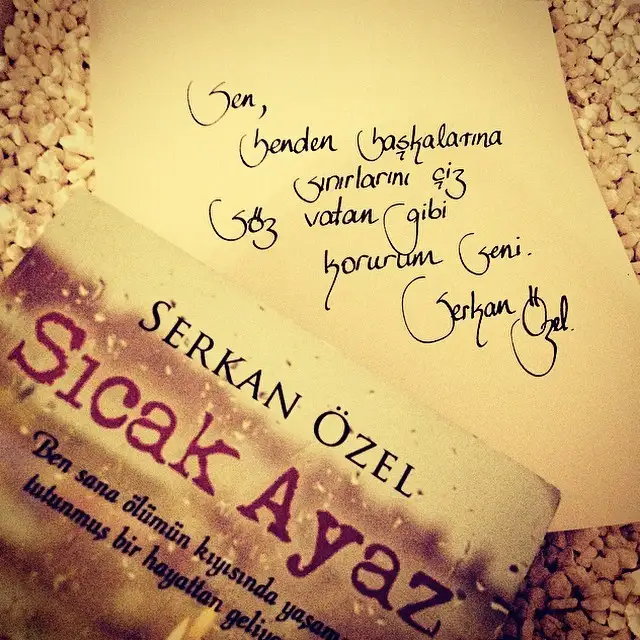 Sen,
benden başkalarına
sınırlarını çiz
Söz vatan gibi
korurum seni.
Serkan Özel.
SERKAN ÖZEL
Sıcak Ayaz
Ben sana ölümün kıyısında
tutunmuş bir hayattan